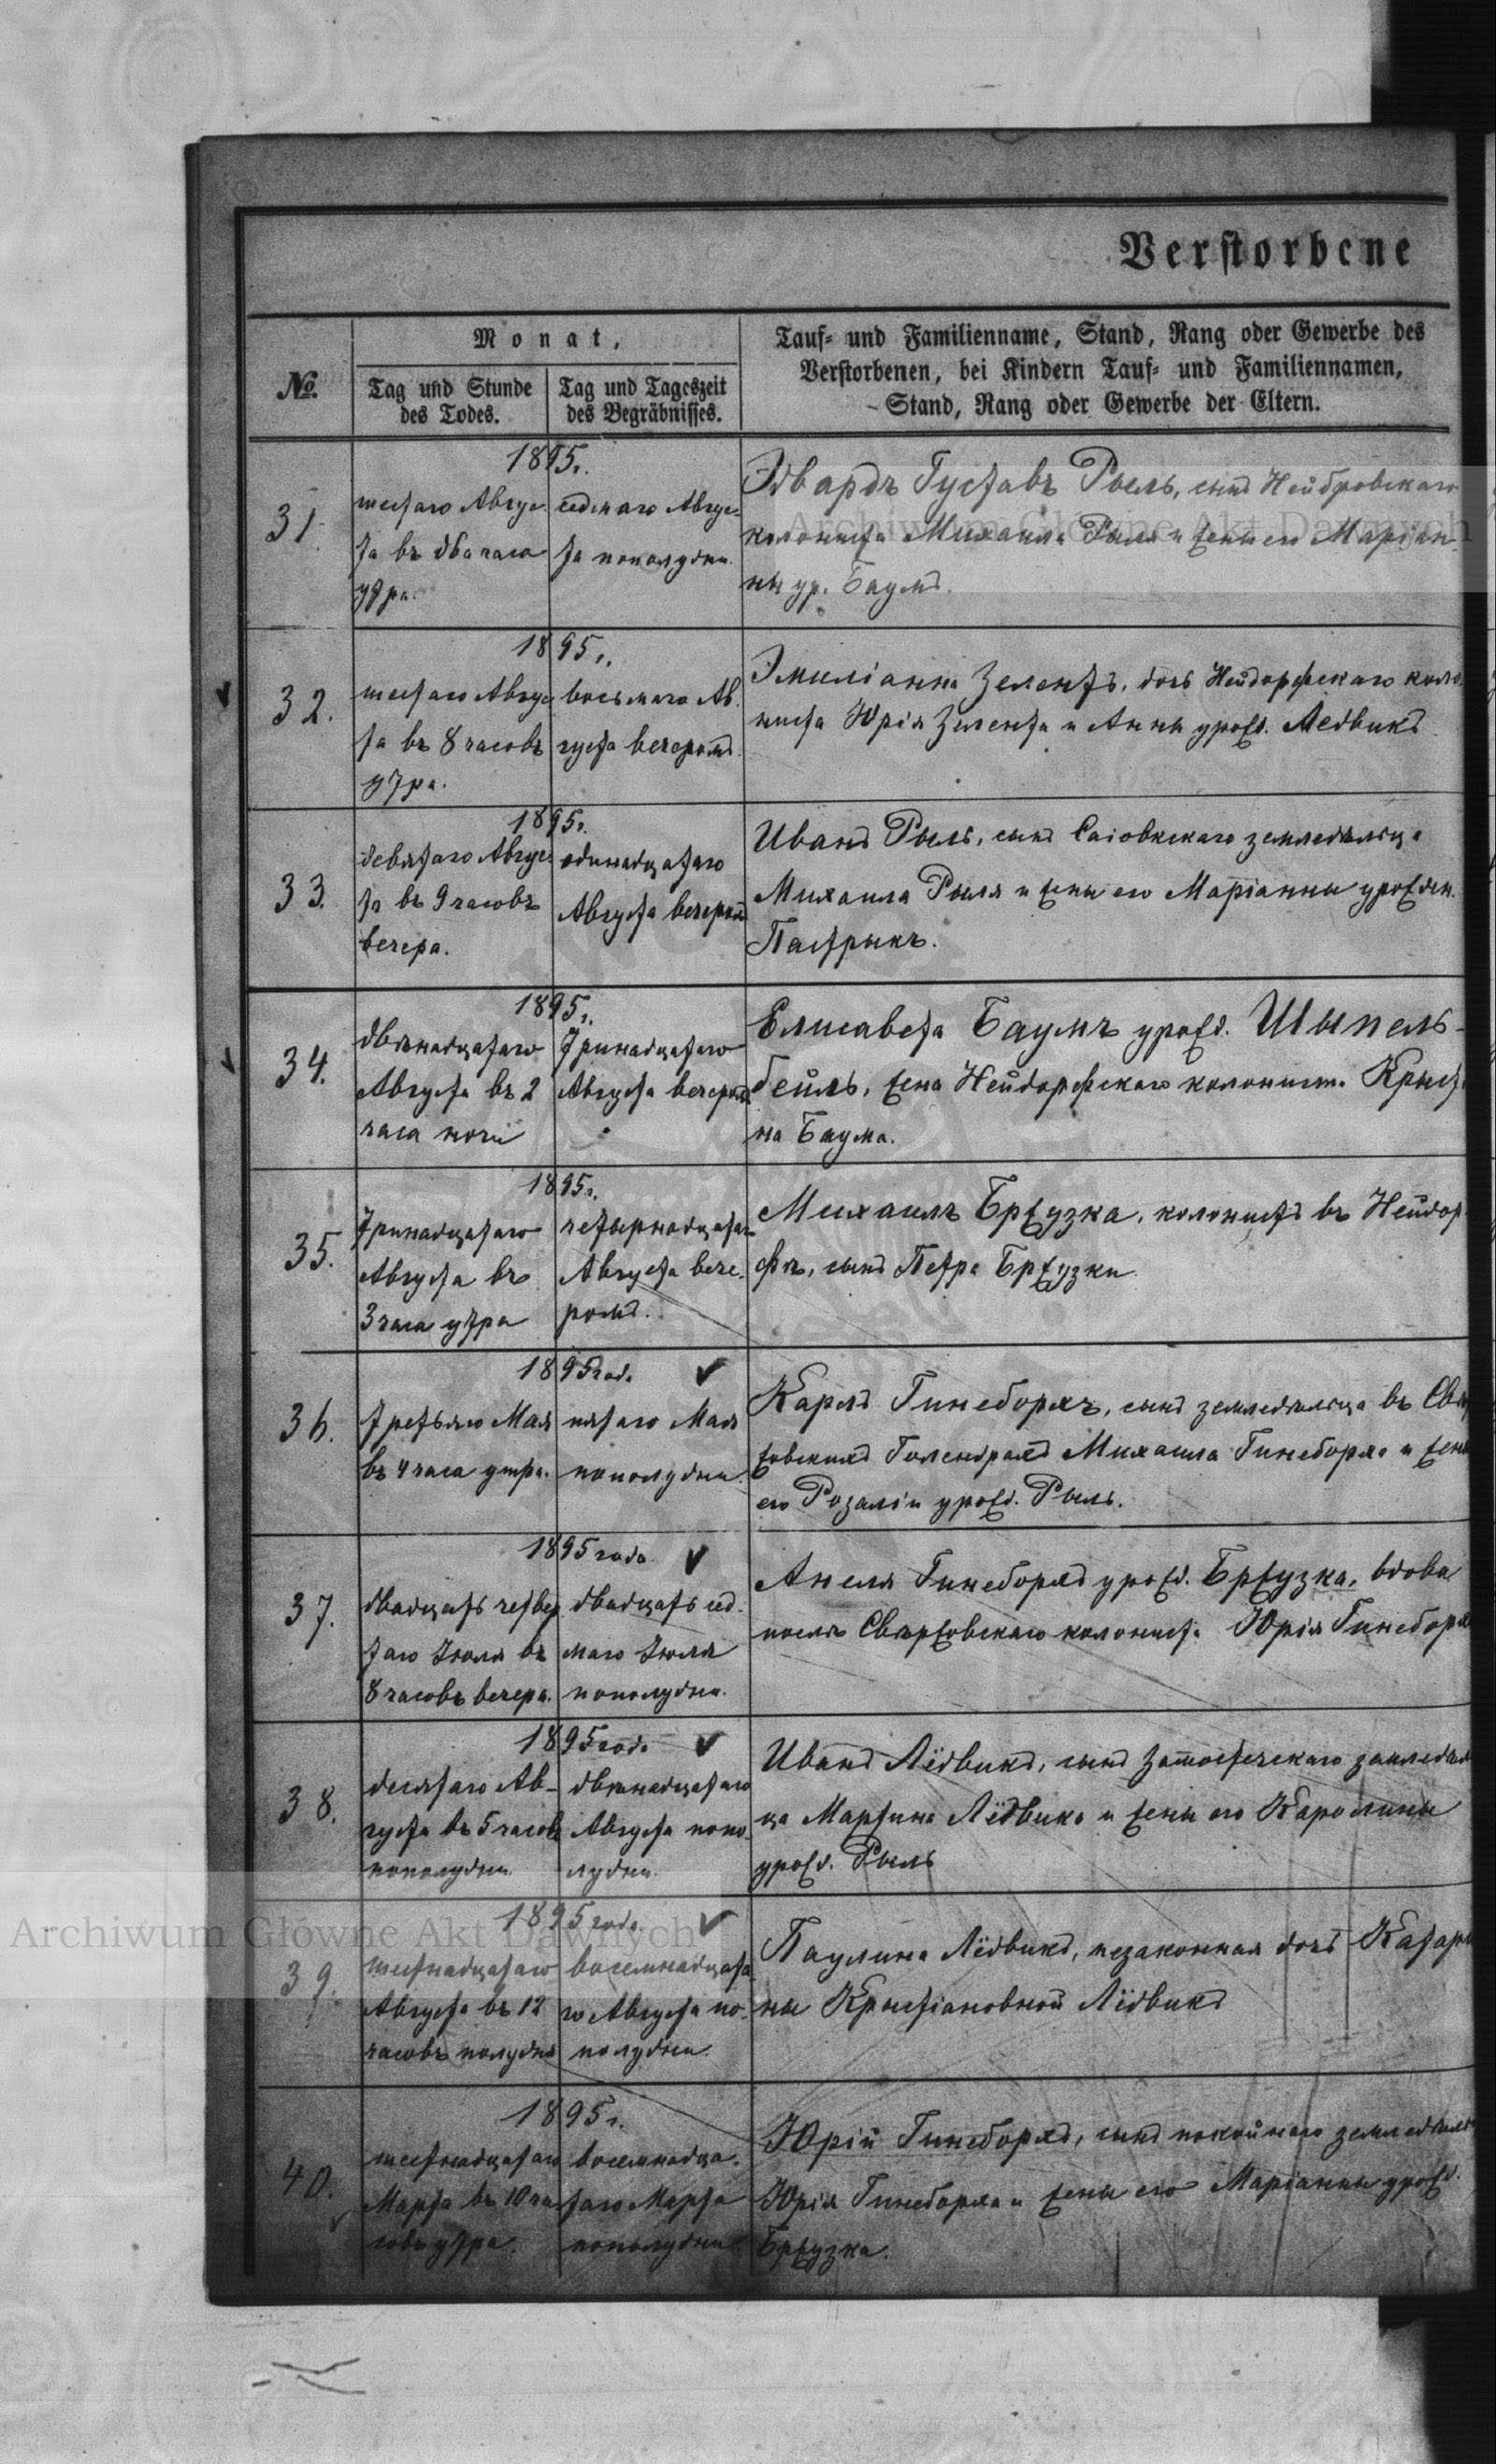 Verstorbene
№.
Monat,
Tag und Stunde
des Todes.
Tag und Tageszeit
des Begräbnisses.
Tauf- und Familienname, Stand, Rang oder Gewerbe des
Verstorbenen, bei Kindern Tauf- und Familiennamen,
Stand, Rang oder Gewerbe der Eltern.
31.
1895 г.
шестаго Авгус-
та въ два часа
утра.
седьмаго Авгус-
та пополудни.
Эдвардъ Густавъ Рыль, сынъ Нейбровскаго
колониста Михаила Рыля и жены его Маріан-
ны ур. Баумъ.
32.
1895 г.
шестаго Авгус
та въ 8 часовъ
утра.
восьмаго Ав-
густа вечеромъ.
Эмиліанна Зелентъ, дочь Нейдорфскаго коло-
ниста Юрія Зелента и Анны урожд. Ледвикъ
33.
1895 г.
девятаго Авгус
та въ 9 часовъ
вечера.
одинадцатаго
Августа вечеромъ
Иванъ Рыль, сынъ земледѣльца
Михаила Рыля и жены его Маріанны урожден.
Пастрыкъ.
34.
1895 г.
двѣнадцатаго
Августа въ 2
часа ночи
тринадцатаго
Августа вечеромъ
Елисавета Баумъ урожд. Шыпель-
бейль, жена Нейдорфскаго колониста Крыст
на Баума.
35.
1895 г.
тринадцатаго
Августа въ
3 часа утра
четырнадцатаго
Августа вече-
ромъ.
Михаилъ Бржузка, колонистъ въ Нейдор
фѣ, сынъ Петра Бржузки
36.
1895 года
третьяго Мая
въ 4 часа утра.
пятаго Мая
пополудни.
Карлъ Гинеборхъ, сынъ земледѣльца въ Свѣр
жовскихъ Голендрахъ Михаила Гинеборха и жены
его Розаліи урожд. Рыль.
37.
1895 года
двадцать четвер
таго Іюля въ
8 часовъ вечера.
двадцать сед-
маго Іюля
пополудни.
Анеля Гинеборхъ урожд. Бржузка, вдова
послѣ Свѣржовскаго колониста Юрія Гинеборха
38.
1895 года
десятаго Ав-
густа въ 5 часовъ
пополудни.
двѣнадцатаго
Августа попо-
лудни.
Иванъ Лёдвикъ, сынъ земледѣл
ца Мартина Лёдвика и жены его Каролины
урожд. Рыль
39.
1895 года
шестнадцатаго
Августа въ 12
часовъ полудня
восемнадцата
го Августа по-
полудни.
Паулина Лёдвикъ, незаконная дочь Катари
ны Крыстіановной Лёдвикъ
40.
1895 г.
шестнадцатаго
Марта въ 10 ча
совъ утра.
восемнадца-
таго Марта
пополудни
Юрій Гинеборхъ, сынъ покойнаго земледѣль
Юрія Гинеборха и жены его Маріанны урожд.
Бржузка.
Archiwum Główne Akt Dawnych
Archiwum Główne Akt Dawnych